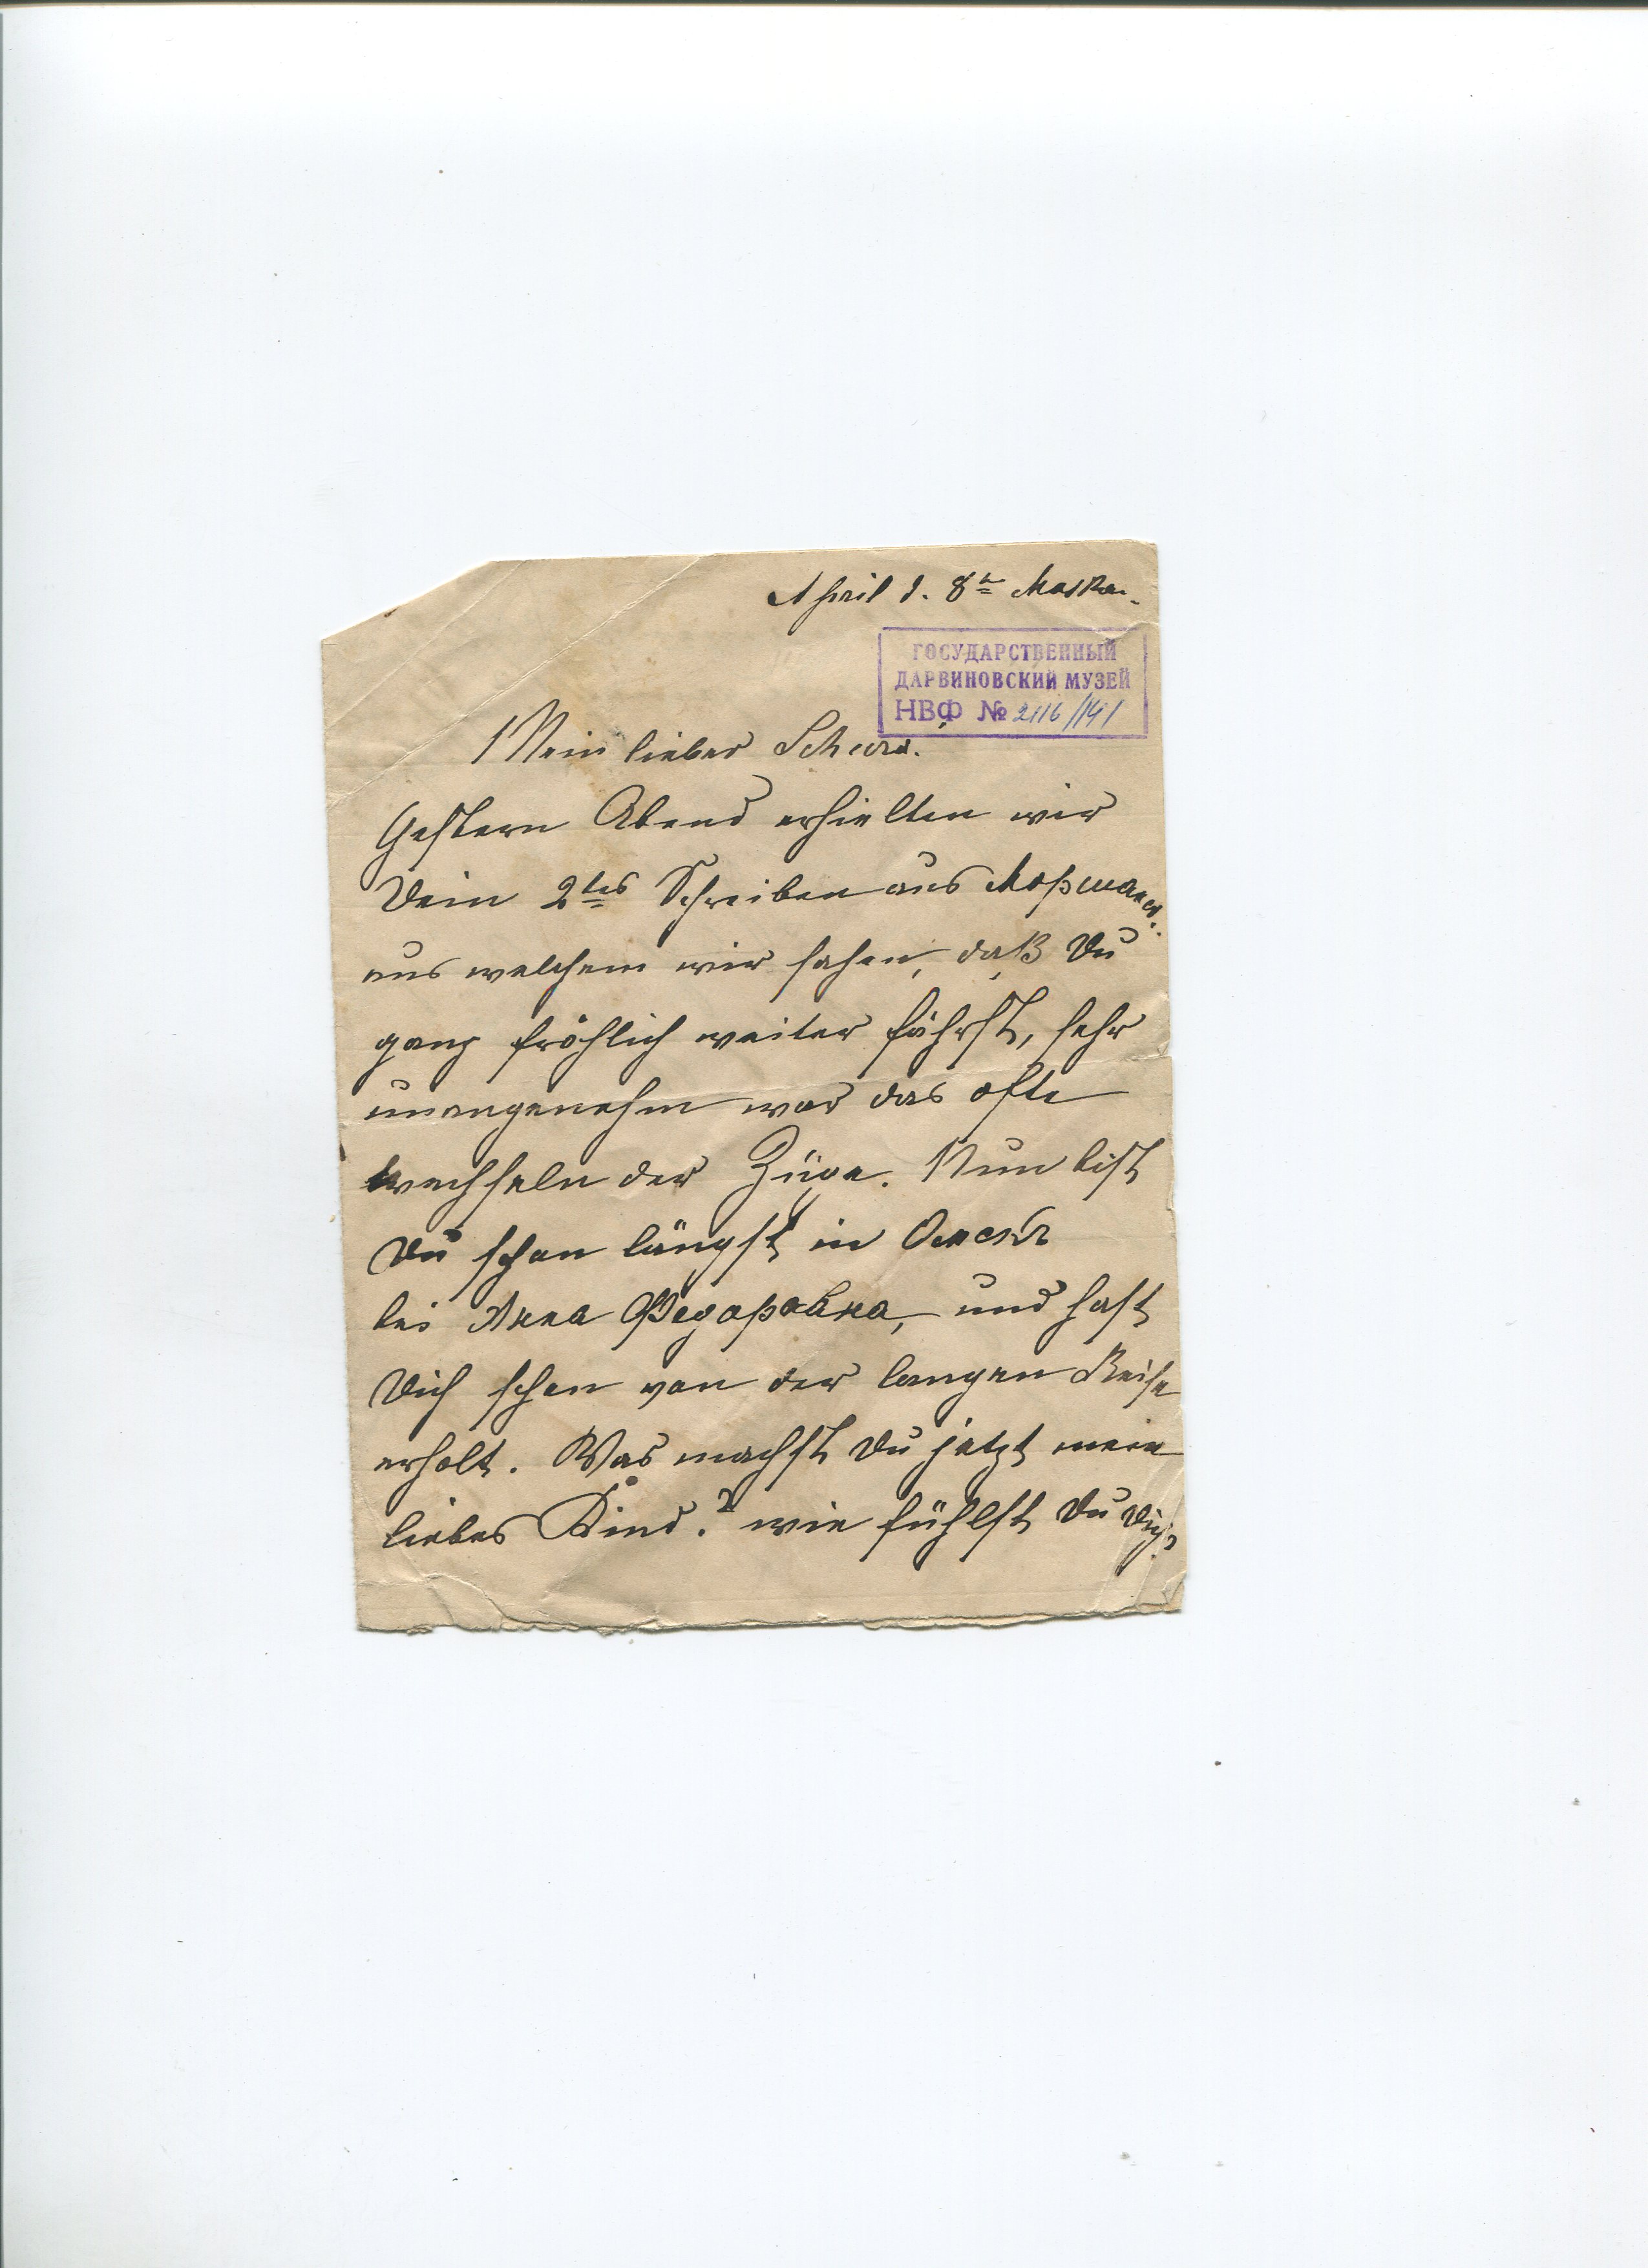 April d. 8te Moskau.
ГОСУДАРСТВЕННЫЙ
ДАРВИНОВСКИЙ МУЗЕЙ
НВФ № 2116/141
Mein lieber Schura.
Gestern Abend erhielten wir
Dein 2tes Schreiben aus Моршанск.
aus welchem wir sahen, daß Du
ganz fröhlich weiter fährst, sehr
unangenehm war das ofte
wechseln der Züge. Nun bist
Du schon längst in Омскъ
bei Анна Федоровна, und hast
Dich schon von der langen Reise
erholt. Was machst Du jetzt mein
liebes Kind? wie fühlst Du Dich?